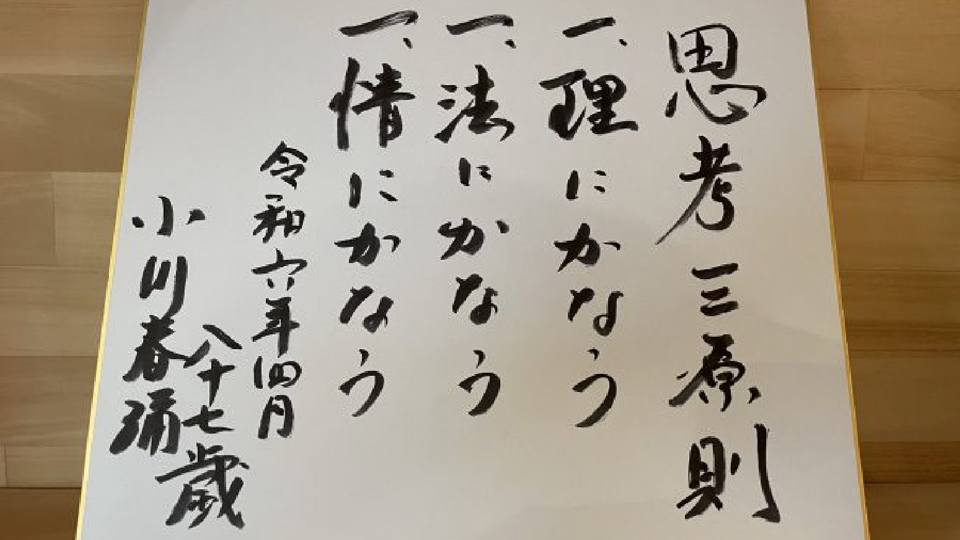 思考三原則
一、理にかなう
一、法にかなう
一、情にかなう
令和六年四月
八十七歳
小川春彌